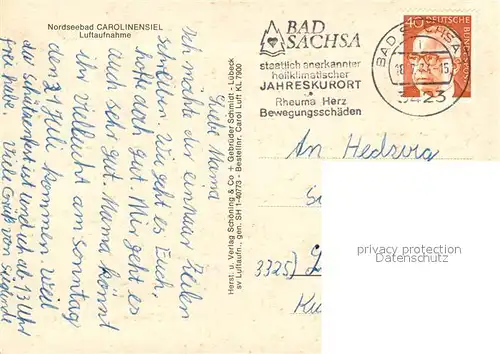 Nordseebad CAROLINENSIEL
Luftaufnahme
Liebe Mama
ich möchte dir ein paar Zeilen
schreiben. Wie geht es Euch,
hoff doch gut. Mir geht es
auch sehr gut. Mama könnt
ihr vielleicht am Sonntag
den 21 Juli kommen weil
da Schützenfest ist und ich ab 13 Uhr
frei habe. Viele Grüße von
Herst. u. Verlag Schöning & Co + Gebrüder Schmidt - Lübeck
sv Luftaufn., gen. SH 1-40773 - Bestellnr. Carol Luft KL 7900
BAD
SACHSA
staatlich anerkannter
heilklimatischer
JAHRESKURORT
Rheuma Herz
Bewegungsschäden
BAD SACHSA
3423
40
DEUTSCHE BUNDESPOST
An Hedwig
3325)
privacy protection
Datenschutz